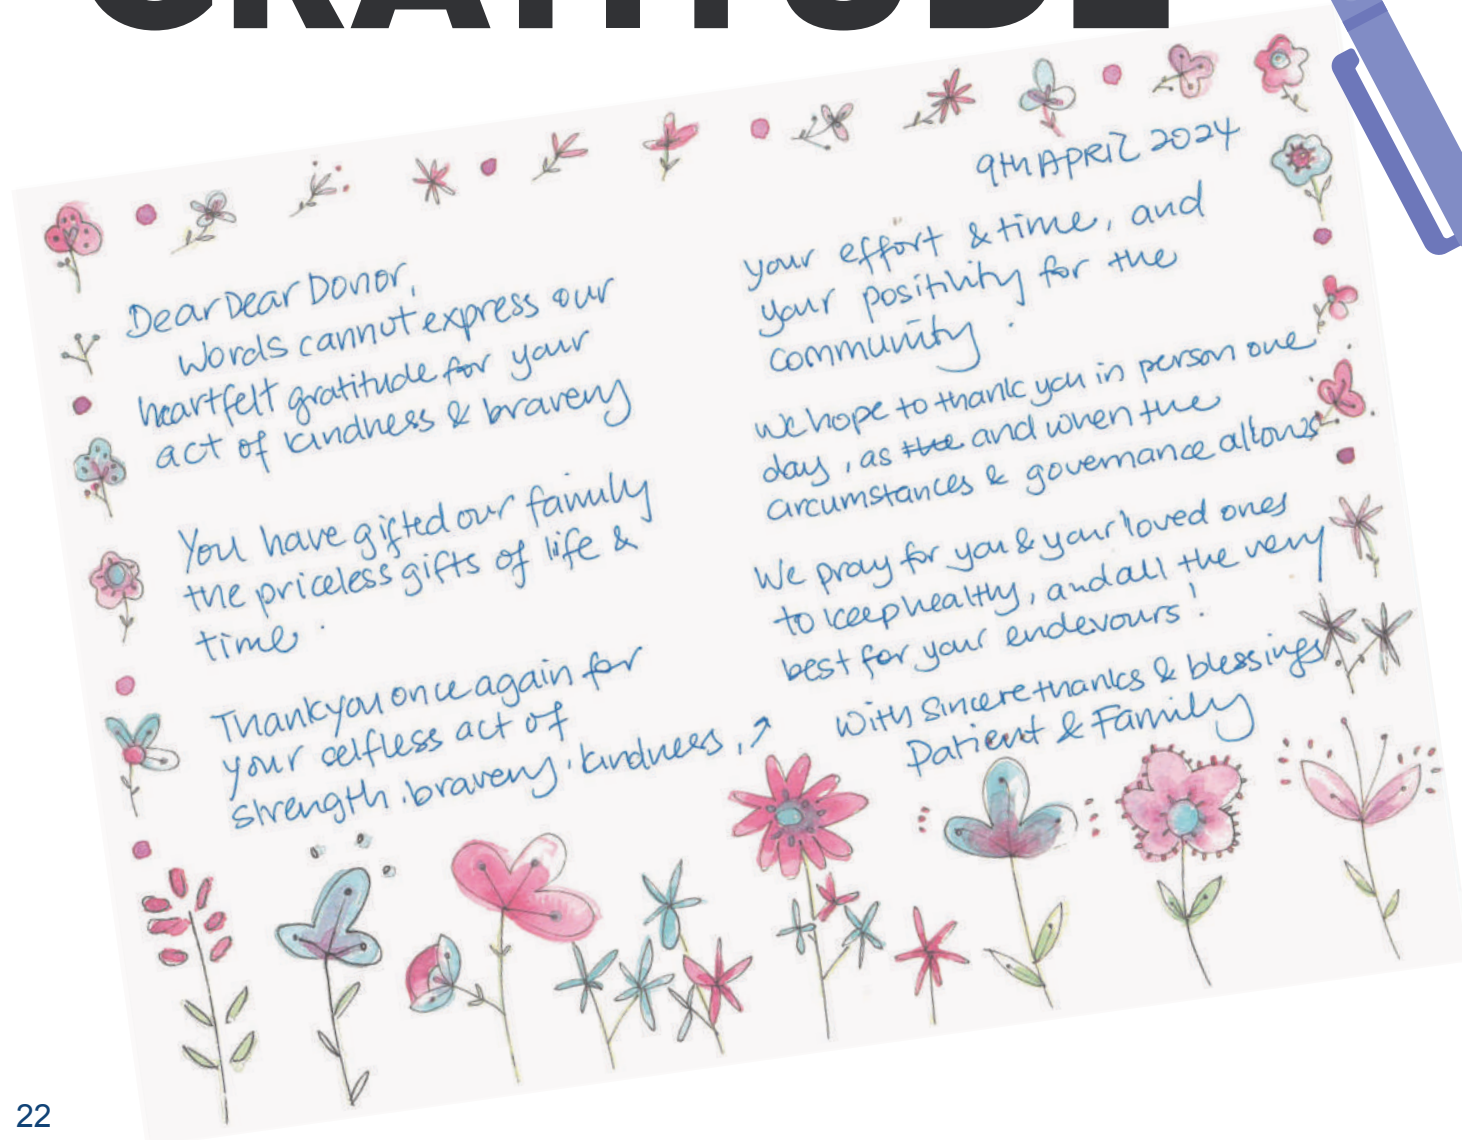 GRATITUDE
9th APRIL 2024
Dear Dear Donor,
Words cannot express our
heartfelt gratitude for your
act of kindness & bravery
You have gifted our family
the priceless gifts of life &
time.
Thankyou once again for
your selfless act of
strength, bravery, kindness, ↗
your effort & time, and
your positivity for the
community.
We hope to thank you in person one
day, as the and when the
circumstances & governance allows
We pray for you & your loved ones
to keep healthy, and all the very
best for your endevours!
With sincere thanks & blessings
Patient & Family
22